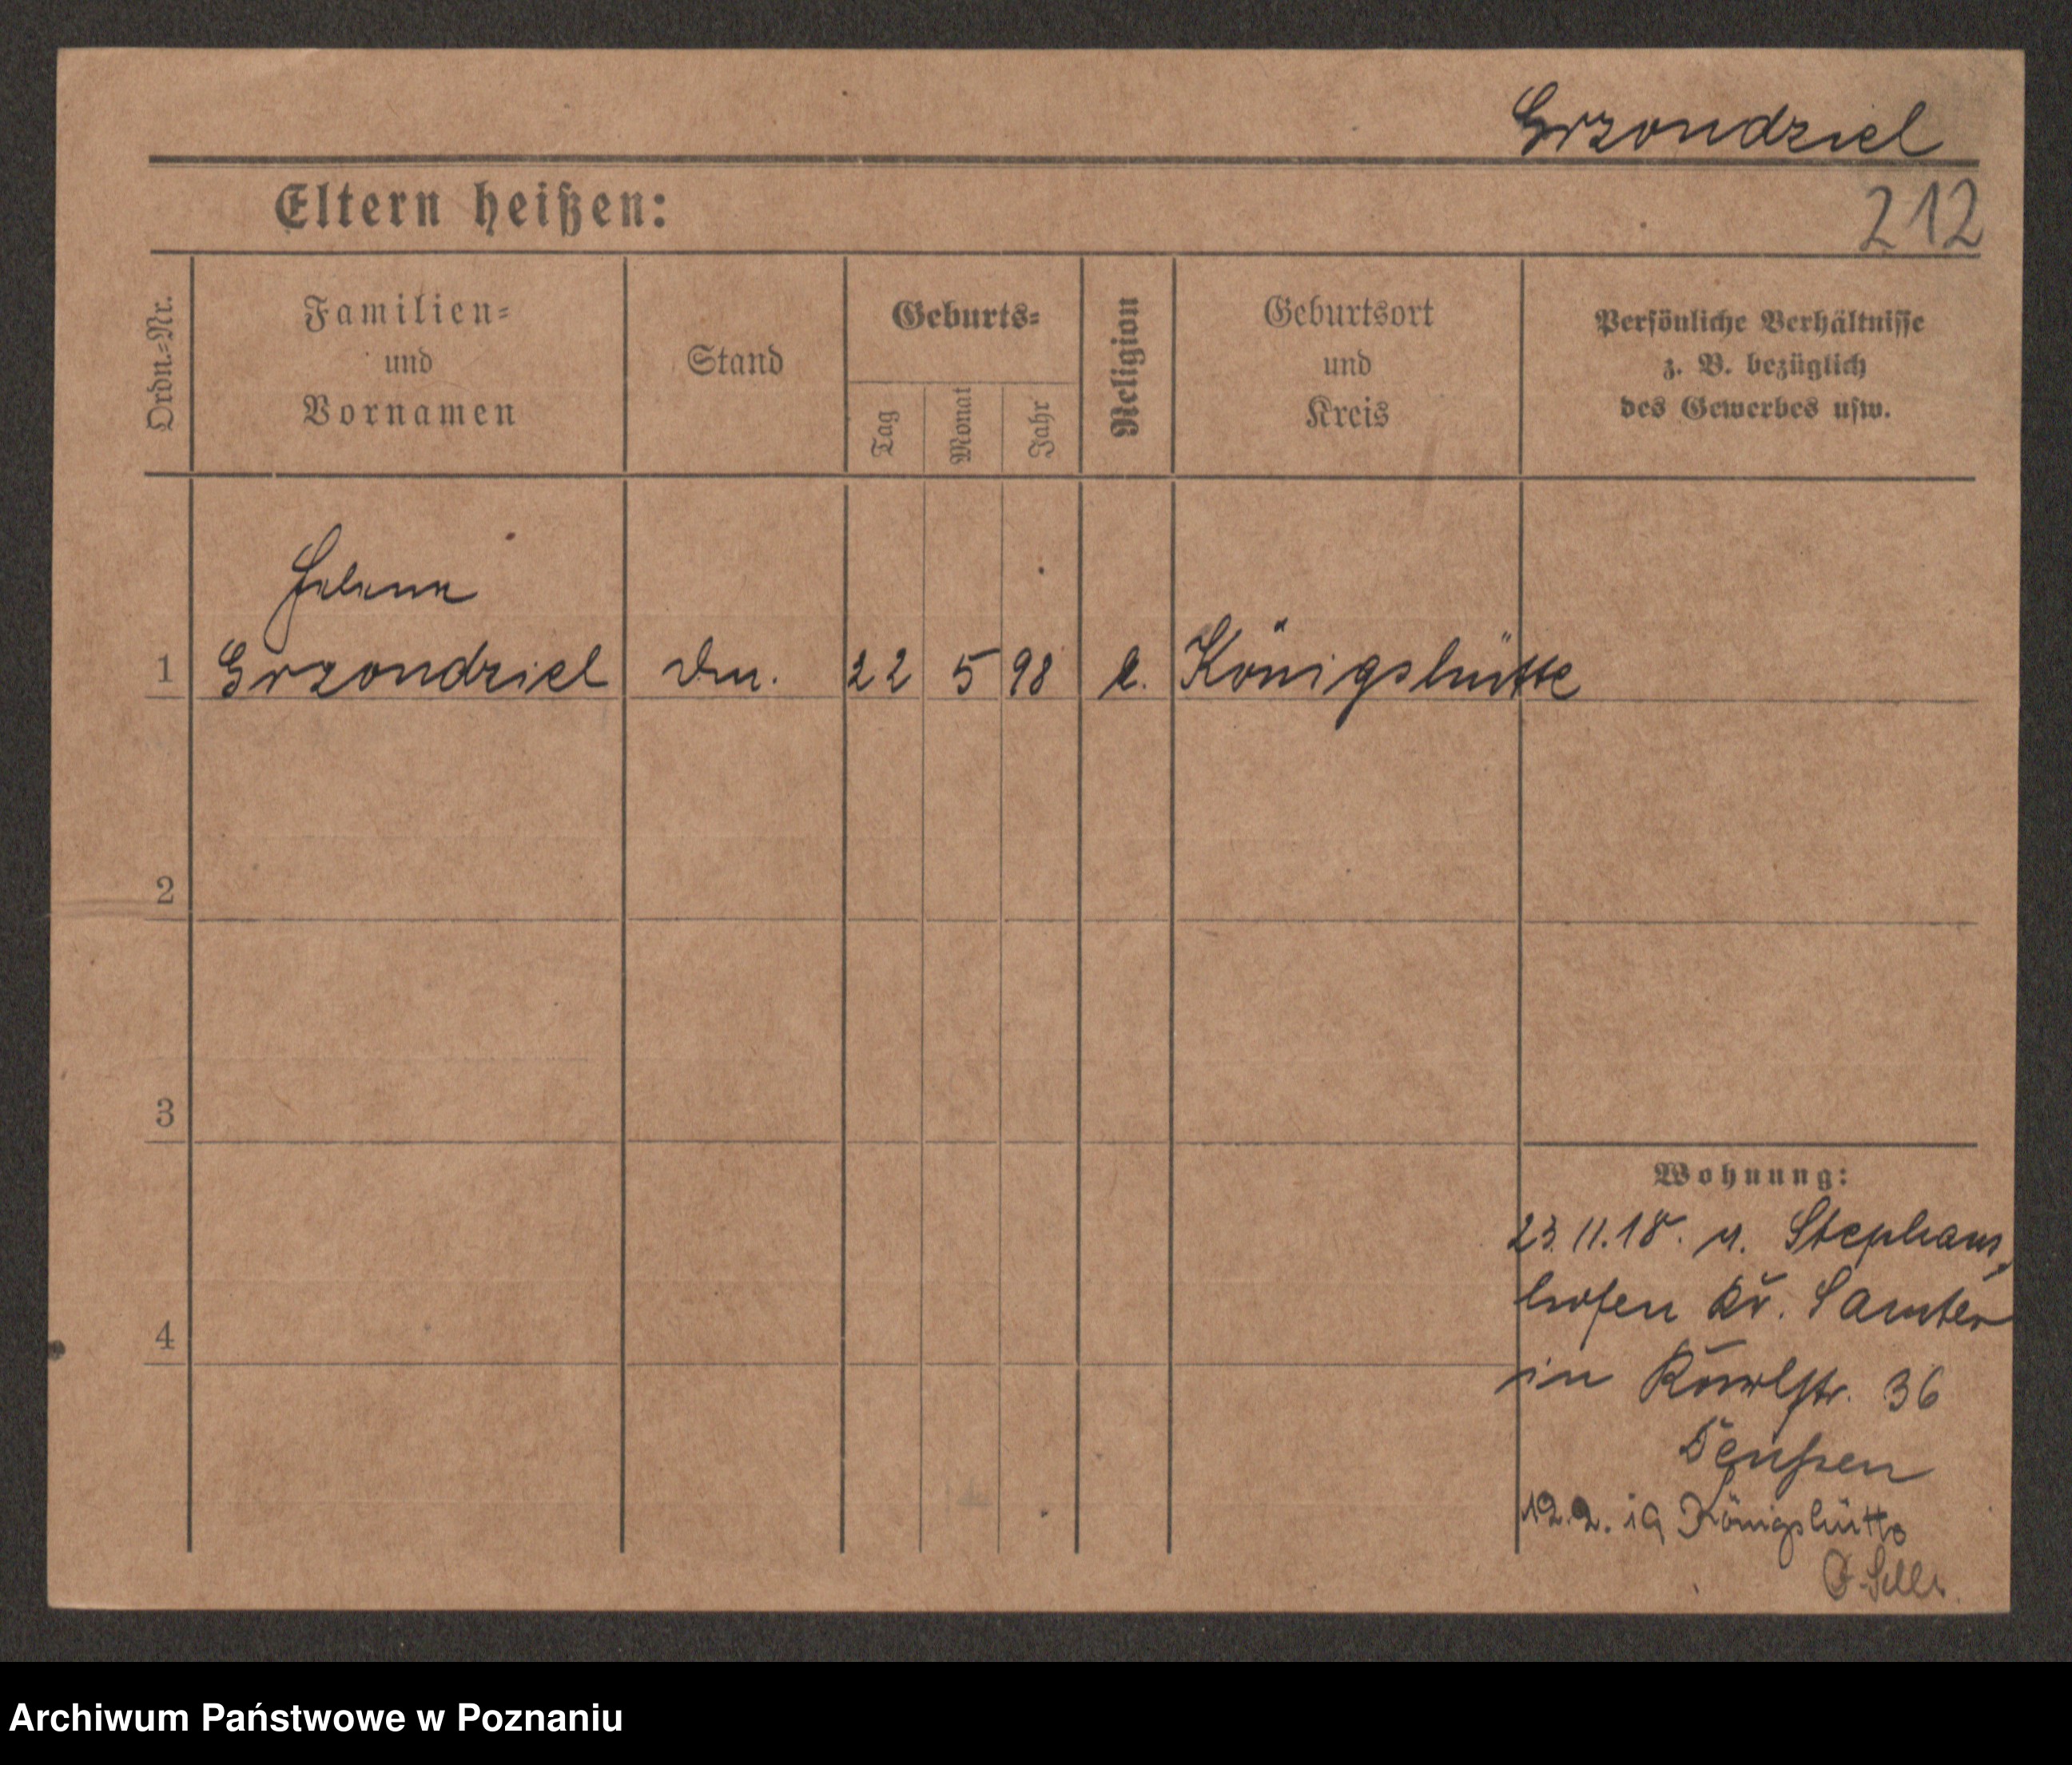 Grzondziel
212
Eltern heißen:
Ordn.=Nr.
Familien=
und
Vornamen
Stand
Geburts=
Tag
Monat
Jahr
Religion
Geburtsort
und
Kreis
Persönliche Verhältnisse
z. B. bezüglich
des Gewerbes usw.
Helene
1 Grzondziel 22 5 98 k. Königshütte
2
3
4
Wohnung:
23.11.18. v. Stephans
hofen Kr. Samter
in 36
12.2.19 Königshütte
Archiwum Państwowe w Poznaniu